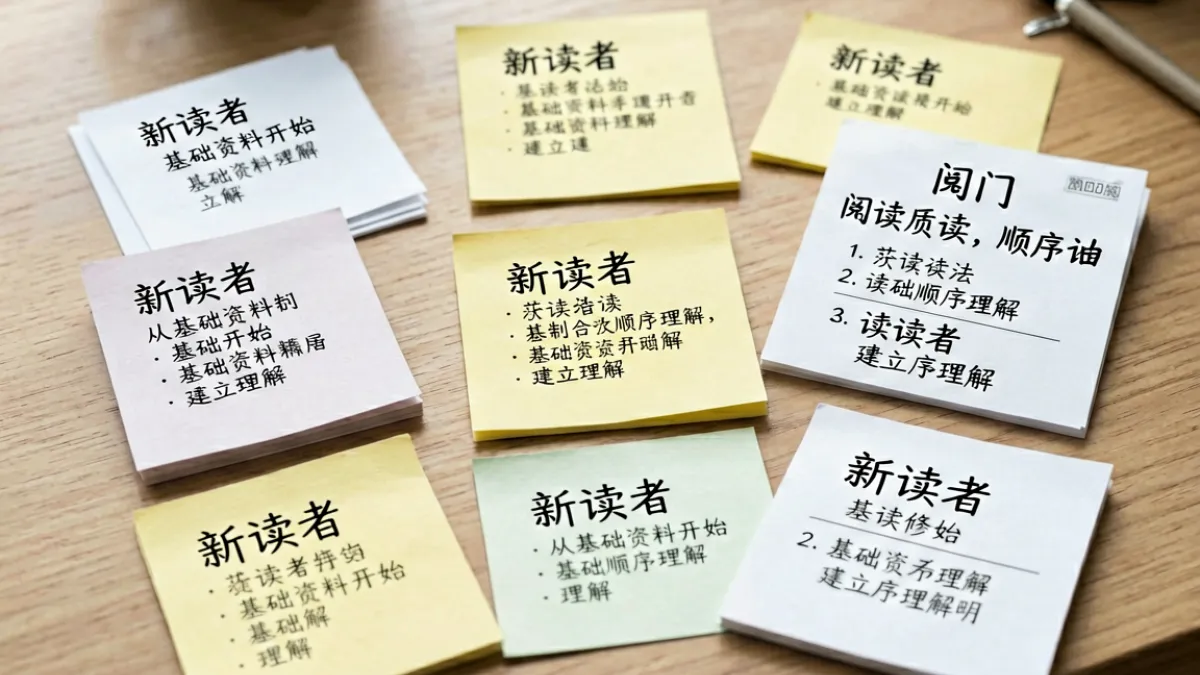 新读者
基础资料开始
基础资料理解
立解
新读者
基读者
基础资料 开
基础资料理解
建立
新读者
基础资 开始
建立理解
新读者
从基础资料
基础开始
基础资料
建立理解
新读者
读 读
基 合 顺序理解，
基础资资开 解
建立理解
门
阅读质读，顺序
1. 读读法
2. 读础顺序理解
3. 读读者
建立序理解
新读者
读者
基础资料开始
基础解
理解
新读者
从基础资料开始
基础顺序理解
理解
新读者
基读修始
2. 基础资 理解
建立序理解明